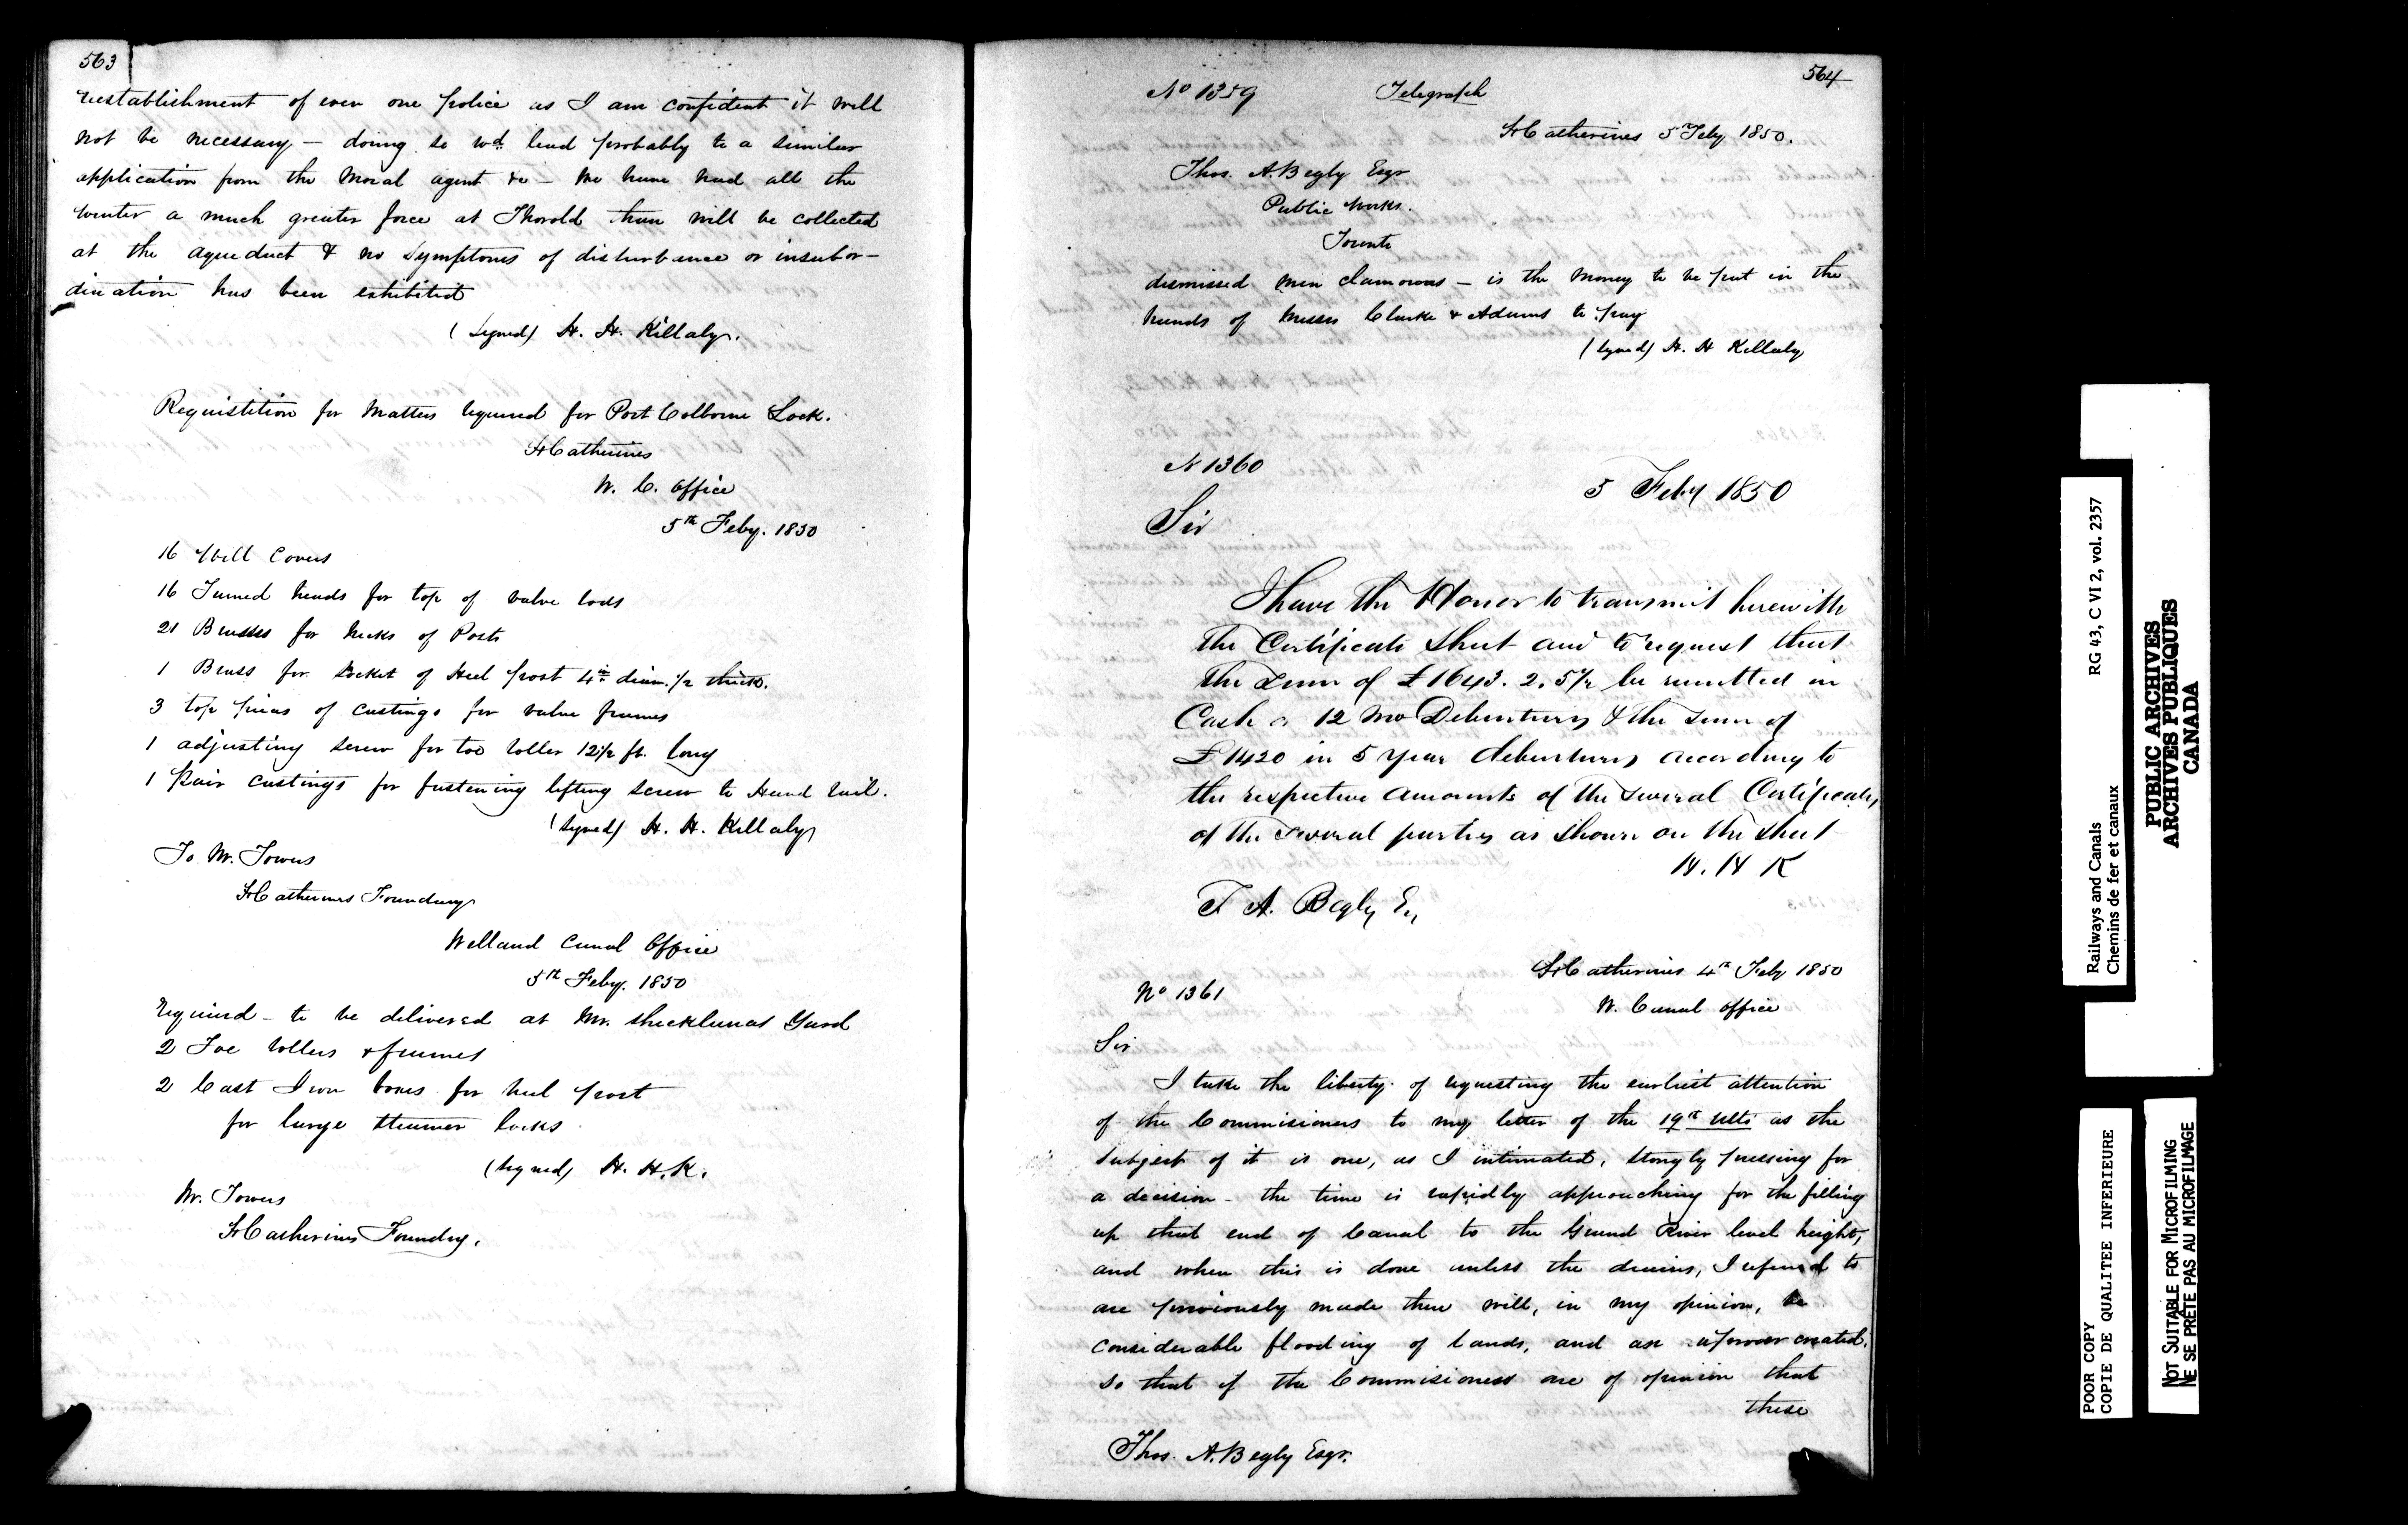 563
reestablishment of even one police as I am confident it will
not be necessary — doing so wd. lead probably to a similar
application from the Moral agent &c — We have had all the
winter a much greater force at Thorold than will be collected
at the aqueduct & no symptoms of disturbance or insubor-
dination has been exhibited
(Signed) H. H. Killaly.
Requistition for Matters required for Port Colborne Lock.
St Catherines
W. C. Office
5th Feby. 1850
16 Well Covers
16 Turned heads for top of valve rods
21 Brasses for Necks of Posts
1 Brass for socket of Heel post 4 in diam. 1/2 thick.
3 top pieces of castings for valve frames
1 adjusting screw for toe roller 12 1/2 ft. long
1 Pair castings for fastening lifting screw to Hand rail.
(Signed) H. H. Killaly
To Mr. Towers
St Catherines Foundry
Welland Canal Office
5th Feby. 1850
required — to be delivered at Mr. Shicklunas Yard
2 Toe rollers & frames
2 Cast Iron boxes for heel post
for large steamer locks
(Signed) H. H. K.
Mr. Towers
St Catherines Foundry.
564
No 1359 Telegraph
St Catherines 5th Feby 1850.
Thos. A. Begly Esqr
Public Works.
Toronto
dismissed men clamorous — is the money to be put in the
hands of Messrs Clarke & Adams to pay
(Signed) H. H Killaly
No 1360
5 Feby 1850
Sir
I have the Honor to transmit herewith
the Certificate Sheet and to request that
the Sum of £1643. 2. 5 1/2 be remitted in
Cash or 12 Mo Debentures & the sum of
£1420 in 5 year debentures according to
the respective amounts of the several Certificates
of the several parties as shown on the sheet
H. H K
T A. Begly Eq
St Catherines 4th Feby 1850
No 1361
W. Canal Office
Sir
I take the liberty of requesting the earliest attention
of the Commisioners to my letter of the 19th ulto as the
subject of it is one, as I intimated, strongly pressing for
a decision — the time is rapidly approaching for the filling
up that end of Canal to the Grand River level height,
and when this is done unless the drains, I referred to
are previously made there will, in my opinion, be
considerable flooding of lands, and an uproar created.
so that if the Commisioners are of opinion that
these
Thos. A. Begly Esqr.
Railways and Canals RG 43, C VI 2, vol. 2357
Chemins de fer et canaux
PUBLIC ARCHIVES
ARCHIVES PUBLIQUES
CANADA
POOR COPY
COPIE DE QUALITEE INFERIEURE
NOT SUITABLE FOR MICROFILMING
NE SE PRÊTE PAS AU MICROFILMAGE